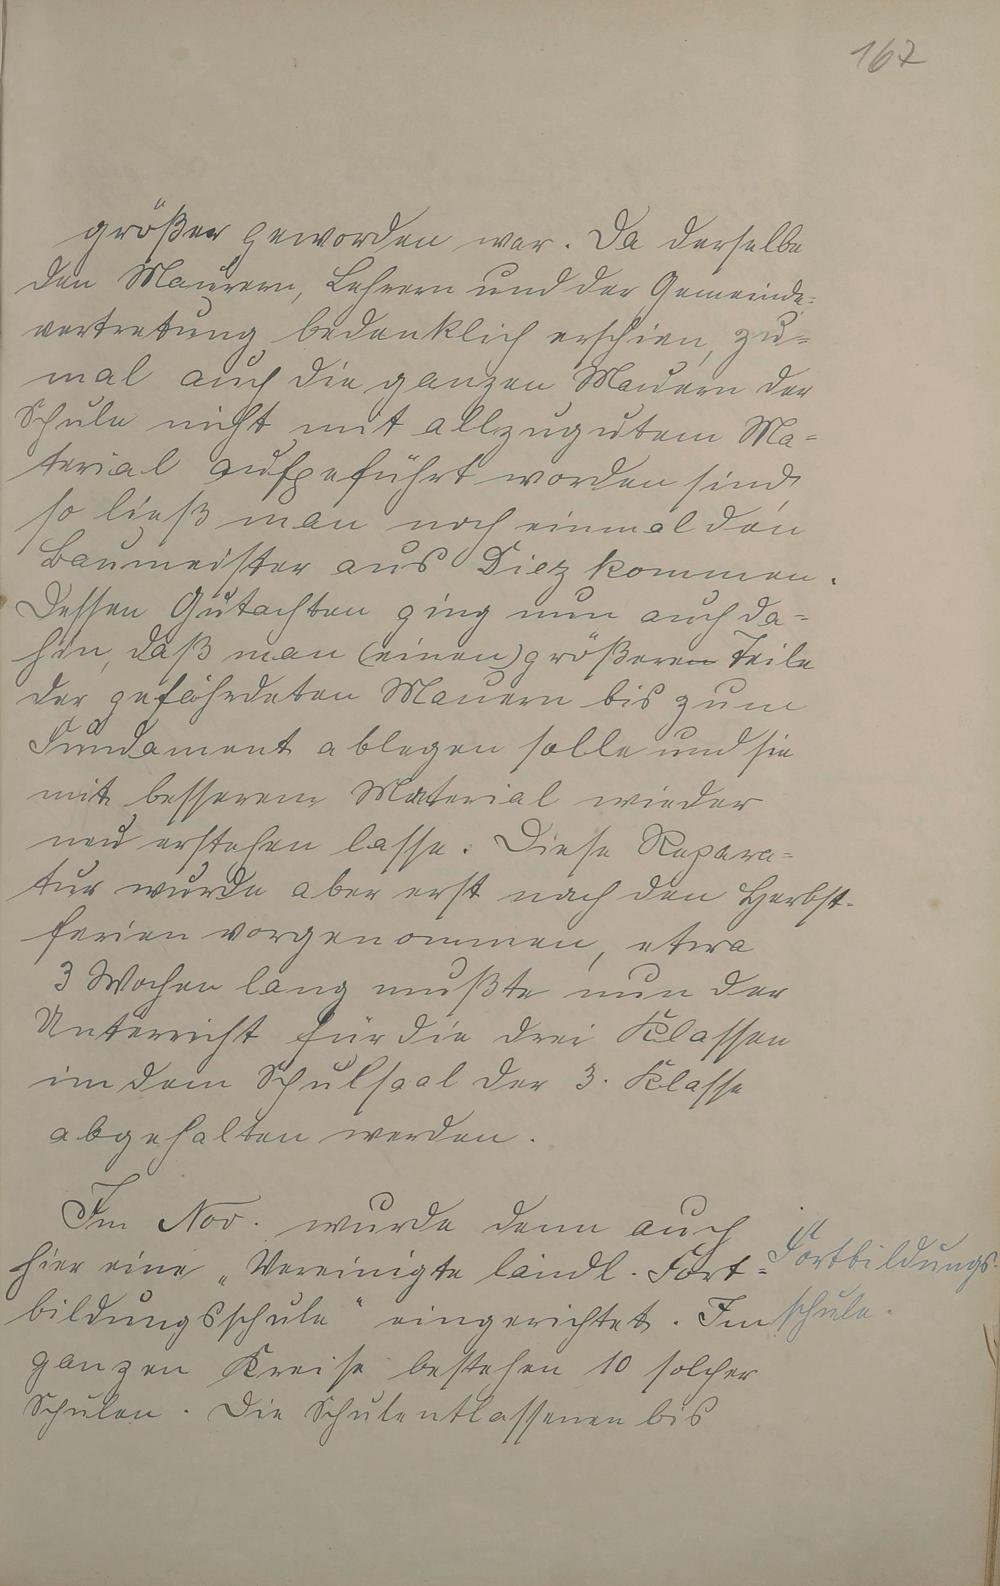 167
größer geworden war. Da derselbe
den Maurern, Lehrern und der Gemeinde-
vertretung bedenklich erschien, zu-
mal auch die ganzen Mauern der
Schule nicht mit allzugutem Ma-
terial aufgeführt worden sind,
so ließ man noch einmal den
Baumeister aus Diez kommen.
Dessen Gutachten ging nun auch da-
hin, daß man (einen) größeren Teile
der gefährdeten Mauern bis zum
Fundament ablegen solle und sie
mit besserem Material wieder
neu erstehen lasse. Diese Repara-
tur wurde aber erst nach den Herbst-
ferien vorgenommen, etwa
3 Wochen lang mußte nun der
Unterricht für die drei Klassen
in dem Schulsaal der 3. Klasse
abgehalten werden.
Im Nov. wurde denn auch
hier eine „Vereinigte ländl. Fort-
bildungsschule" eingerichtet. Im
ganzen Kreise bestehen 10 solcher
Schulen. Die Schulentlassenen bis
Fortbildungs-
schule.